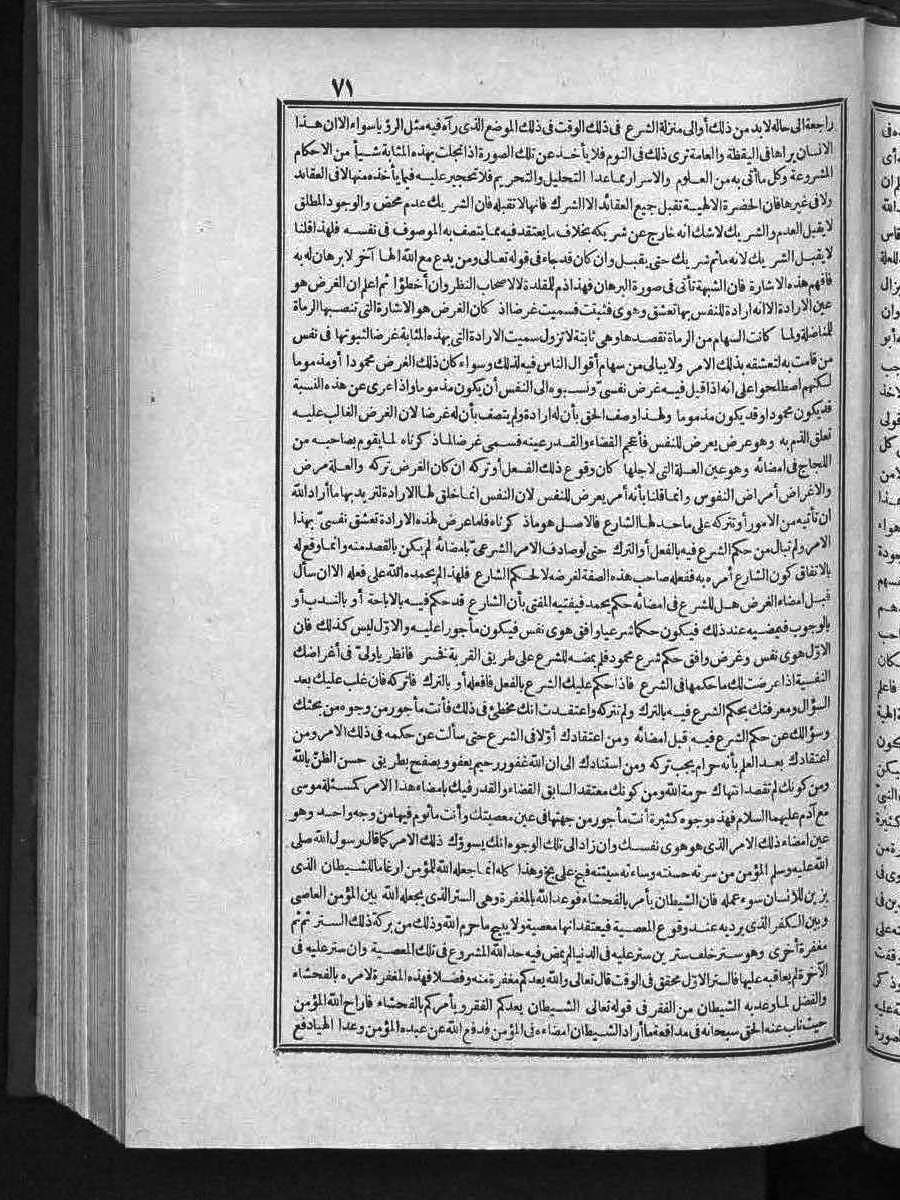 ٧١
راجعة الى حاله لا بد من ذلك أو الى منزلة الشرع في ذلك الوقت في ذلك الموضع الذى رآه فيه مثل الرؤيا سواء الا ان هذا
الانسان يراها فى اليقظة والعامة ترى ذلك فى النوم فلا يأخذ عن تلك الصورة اذا تجلت بهذه المثابة شيأ من الاحكام
المشروعة وكل ما أتى به من العلوم والاسرار مما عدا التحليل والتحريم فلا تحجير عليه فيما يأخذه منها لا فى العقائد
ولا فى غيرها فان الحضرة الالهية تقبل جميع العقائد الا الشرك فانها لا تقبله فان الشريك عدم محض والوجود المطلق
لا يقبل العدم والشريك لا شك انه خارج عن شريكه بخلاف ما يعتقد فيه مما يتصف به الموصوف فى نفسه فلهذا قلنا
لا يقبل الشريك لانه ما ثم شريك حتى يقبل وان كان قد جاء فى قوله تعالى ومن يدع مع الله الها آخر لا برهان له به
فافهم هذه الاشارة فان الشبهة تأتى فى صورة البرهان فهذا ذم للمقلدة لا لاصحاب النظر وان أخطؤا ثم اعلم ان الغرض هو
عين الارادة الا انه ارادة للنفس بها تعشق وهوى فثبتت فسميت غرضا اذ كان الغرض هو الاشارة التى تنصبها الرماة
للمناضلة ولما كانت السهام من الرماة تقصدها وهى ثابتة لا تزول سميت الارادة التى بهذه المثابة غرضا لثبوتها فى نفس
من قامت به لتعشقه بذلك الامر ولا يبالى من سهام أقوال الناس فيه لذلك وسواء كان ذلك الغرض محمودا أو مذموما
لكنهم اصطلحوا على انه اذا قيل فيه غرض نفسىّ ونسبوه الى النفس أن يكون مذموما واذا عرى عن هذه النسبة
قد يكون محمودا وقد يكون مذموما ولهذا وصف الحق بأن له ارادة ولم يتصف بأن له غرضا لان الغرض الغالب عليه
تعلق الذم به وهو عرض يعرض للنفس فأعجم القضاء والقدر عينه فسمى غرضا لما ذكرناه لما يقوم بصاحبه من
اللجاج فى امضائه وهو عين العلة التى لاجلها كان وقوع ذلك الفعل أو تركه ان كان الغرض تركه والعلة مرض
والاغراض أمراض النفوس وانما قلنا بأنه أمر يعرض للنفس لان النفس انما خلق لها الارادة لتريد بها ما أراد الله
ان تأتيه من الامور أو تتركه على ما حد لها الشارع فالاصل هو ماذكرناه فلما عرض لهذه الارادة تعشق نفسىّ بهذا
الامر ولم تبال من حكم الشرع فيه بالفعل أو الترك حتى لو صادف الامر الشرعىّ بامضائه لم يكن بالقصد منه وانما وقع له
بالاتفاق كون الشارع أمره به ففعله صاحب هذه الصفة لغرضه لا لحكم الشارع فلهذا لم يحمده الله على فعله الا ان سأل
قبل امضاء الغرض هل للشرع فى امضائه حكم يحمد فيفتيه المفتى بأن الشارع قد حكم فيه بالاباحة أو بالندب أو
بالوجوب فيمضيه عند ذلك فيكون حكما شرعيا وافق هوى نفس فيكون مأجورا عليه والاوّل ليس كذلك فان
الاوّل هوى نفس وغرض وافق حكم شرع محمود فلم يمضه للشرع على طريق القربة نخسر فانظر ياولىّ فى أغراضك
النفسية اذا عرضت لك ما حكمها فى الشرع فاذا حكم عليك الشرع بالفعل فافعله أو بالترك فاتركه فان غلب عليك بعد
السؤال ومعرفتك بحكم الشرع فيه بالترك ولم تتركه واعتقدت انك مخطئ فى ذلك فأنت مأجور من وجوه من بحثك
وسؤالك عن حكم الشرع فيه قبل امضائه ومن اعتقادك أوّلا فى الشرع حتى سألت عن حكمه فى ذلك الامر ومن
اعتقادك بعد العلم بأنه حرام يجب تركه ومن استنادك الى ان الله غفور رحيم يعفو ويصفح بطريق حسن الظنّ بالله
ومن كونك لم تقصد انتهاك حرمة الله ومن كونك معتقد السابق القضاء والقدر فيك بامضاء هذا الامر كمسئلة موسى
مع آدم عليهما السلام فهذه وجوه كثيرة أنت مأجور من جهتها فى عين معصيتك وأنت مأثوم فيها من وجه واحد وهو
عين امضاء ذلك الامر الذى هو هوى نفسك وان زاد الى تلك الوجوه انك يسوؤك ذلك الامر كما قال رسول الله صلى
الله عليه وسلم المؤمن من سرته حسنته وساءته سيئته فبخ على بخ وهذا كله انما جعله الله للمؤمن ارغاما للشيطان الذى
يزين للانسان سوء عمله فان الشيطان يأمر بالفحشاء فوعد الله بالمغفرة وهى الستر الذى يجعله الله بين المؤمن العاصى
وبين الكفر الذى يرديه عند وقوع المعصية فيعتقد انها معصية ولا يبيح ما حرم الله وذلك من بركة ذلك الستر ثم ثم
مغفرة أخرى وهو ستر خلف ستر بن ستر عليه فى الدنيا لم يمض فيه حد الله المشروع فى تلك المعصية وان ستر عليه فى
الآخرة لم يعاقبه عليها فالستر الاوّل محقق فى الوقت قال تعالى والله يعدكم مغفرة منه وفضلا فهذه المغفرة لامره بالفحشاء
والفضل لما وعد به الشيطان من الفقر فى قوله تعالى الشيطان يعدكم الفقر ويأمركم بالفحشاء فاراح الله المؤمن
حيث ناب عنه الحق سبحانه فى مدافعة ما أراد الشيطان امضاءه فى المؤمن فدفع الله عن عبده المؤمن وعدا الهيا دفع